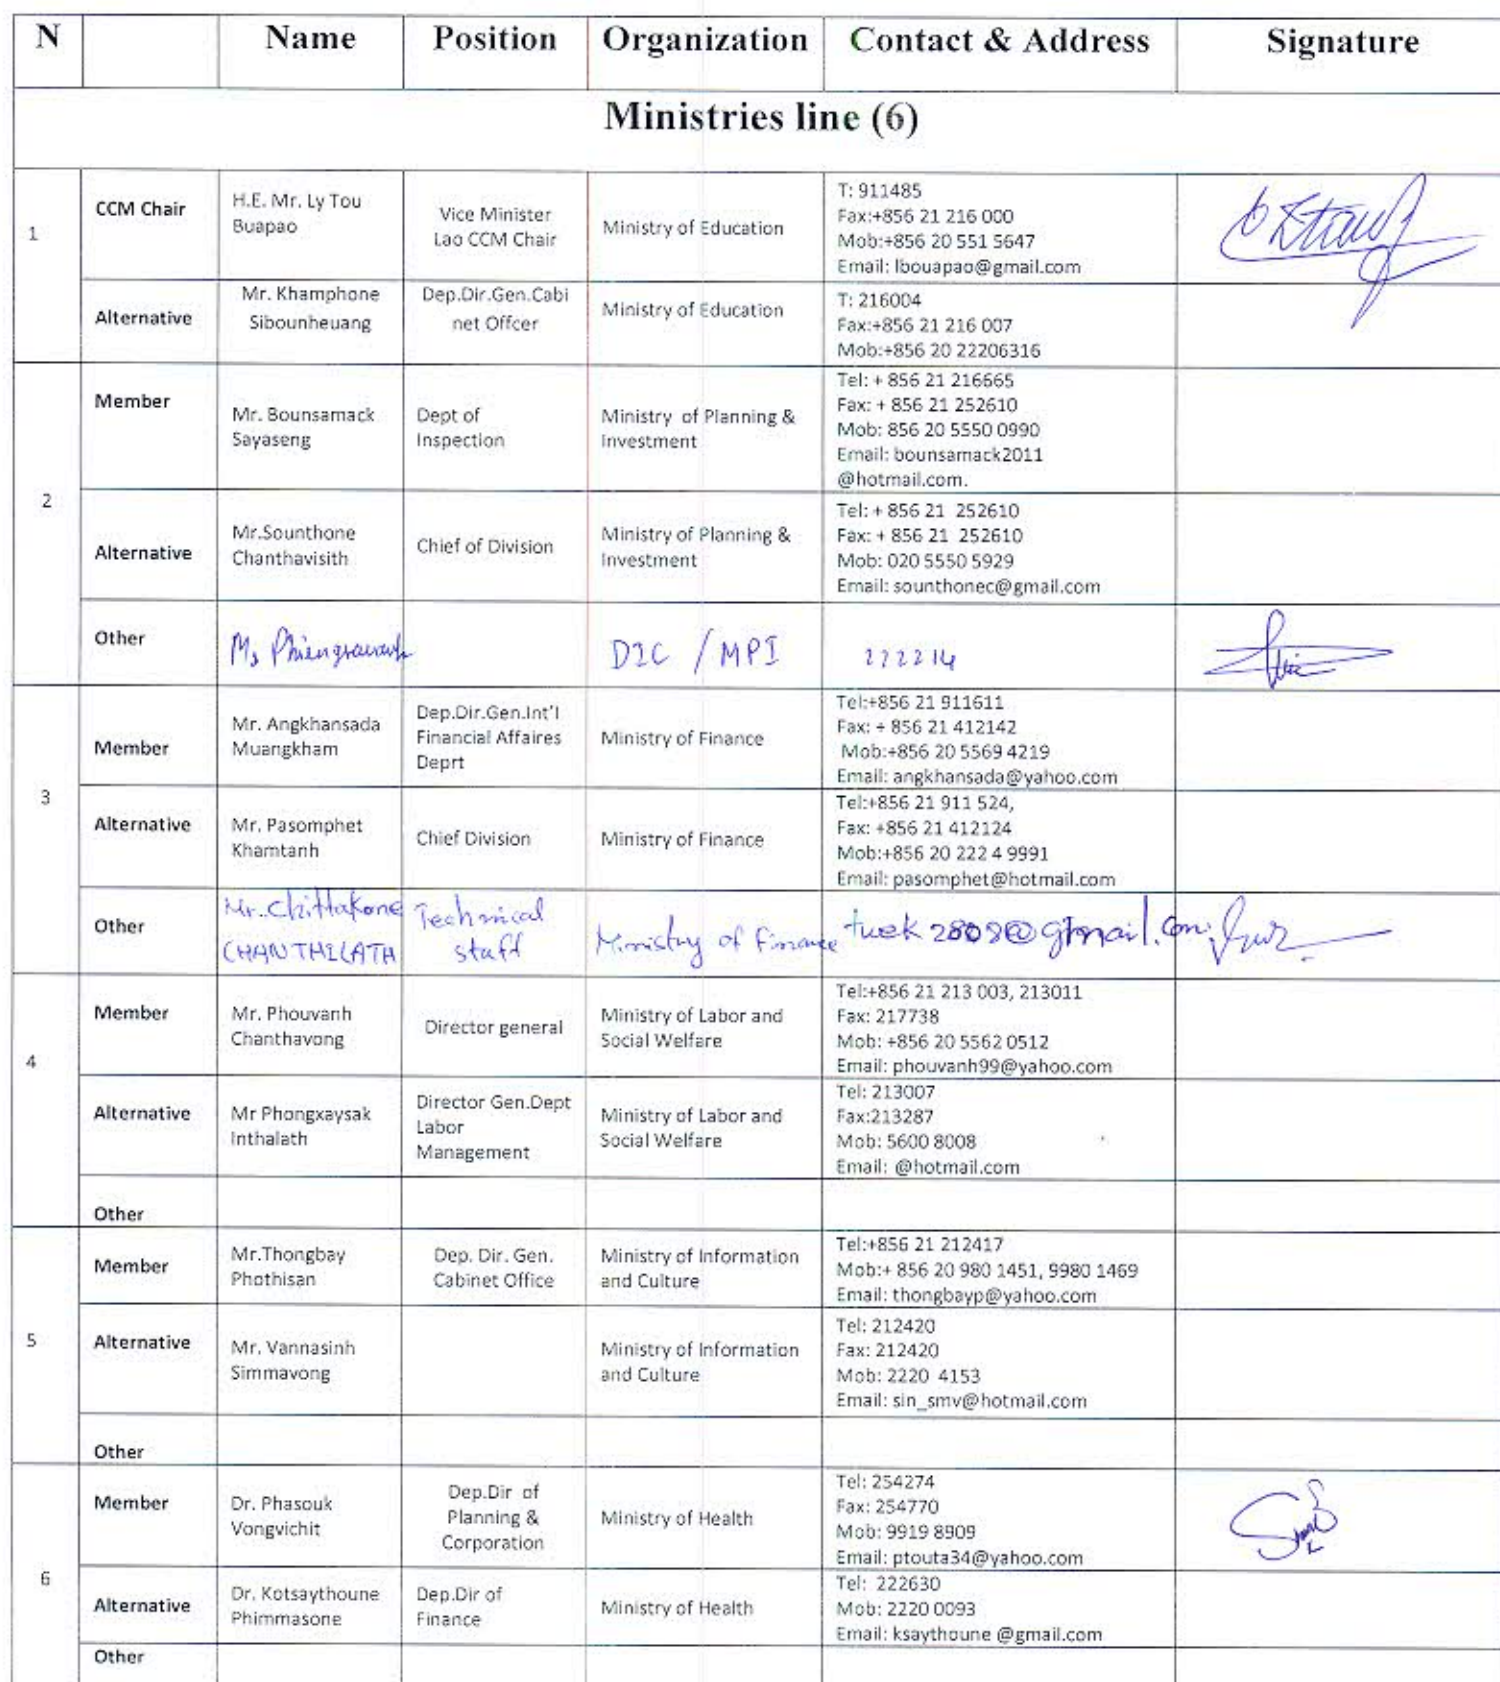 N Name Position Organization Contact & Address Signature
Ministries line (6)
1
CCM Chair
H.E. Mr. Ly Tou
Buapao
Vice Minister
Lao CCM Chair
Ministry of Education
T: 911485
Fax:+856 21 216 000
Mob:+856 20 551 5647
Email: lbouapao@gmail.com
Alternative
Mr. Khamphone
Sibounheuang
Dep.Dir.Gen.Cabi
net Offcer
Ministry of Education
T: 216004
Fax:+856 21 216 007
Mob:+856 20 22206316
2
Member
Mr. Bounsamack
Sayaseng
Dept of
Inspection
Ministry of Planning &
Investment
Tel: + 856 21 216665
Fax: + 856 21 252610
Mob: 856 20 5550 0990
Email: bounsamack2011
@hotmail.com.
Alternative
Mr.Sounthone
Chanthavisith
Chief of Division
Ministry of Planning &
Investment
Tel: + 856 21 252610
Fax: + 856 21 252610
Mob: 020 5550 5929
Email: sounthonec@gmail.com
Other
DIC / MPI
222214
3
Member
Mr. Angkhansada
Muangkham
Dep.Dir.Gen.Int'l
Financial Affaires
Deprt
Ministry of Finance
Tel:+856 21 911611
Fax: + 856 21 412142
Mob:+856 20 5569 4219
Email: angkhansada@yahoo.com
Alternative
Mr. Pasomphet
Khamtanh
Chief Division
Ministry of Finance
Tel:+856 21 911 524,
Fax: +856 21 412124
Mob:+856 20 222 4 9991
Email: pasomphet@hotmail.com
Other
Mr. Chittakone
CHANTHILATH
Technical
staff
Ministry of finance
4
Member
Mr. Phouvanh
Chanthavong
Director general
Ministry of Labor and
Social Welfare
Tel:+856 21 213 003, 213011
Fax: 217738
Mob: +856 20 5562 0512
Email: phouvanh99@yahoo.com
Alternative
Mr Phongxaysak
Inthalath
Director Gen.Dept
Labor
Management
Ministry of Labor and
Social Welfare
Tel: 213007
Fax:213287
Mob: 5600 8008
Email: @hotmail.com
Other
5
Member
Mr.Thongbay
Phothisan
Dep. Dir. Gen.
Cabinet Office
Ministry of Information
and Culture
Tel:+856 21 212417
Mob:+ 856 20 980 1451, 9980 1469
Email: thongbayp@yahoo.com
Alternative
Mr. Vannasinh
Simmavong
Ministry of Information
and Culture
Tel: 212420
Fax: 212420
Mob: 2220 4153
Email: sin_smv@hotmail.com
Other
6
Member
Dr. Phasouk
Vongvichit
Dep.Dir of
Planning &
Corporation
Ministry of Health
Tel: 254274
Fax: 254770
Mob: 9919 8909
Email: ptouta34@yahoo.com
Alternative
Dr. Kotsaythoune
Phimmasone
Dep.Dir of
Finance
Ministry of Health
Tel: 222630
Mob: 2220 0093
Email: ksaythoune @gmail.com
Other